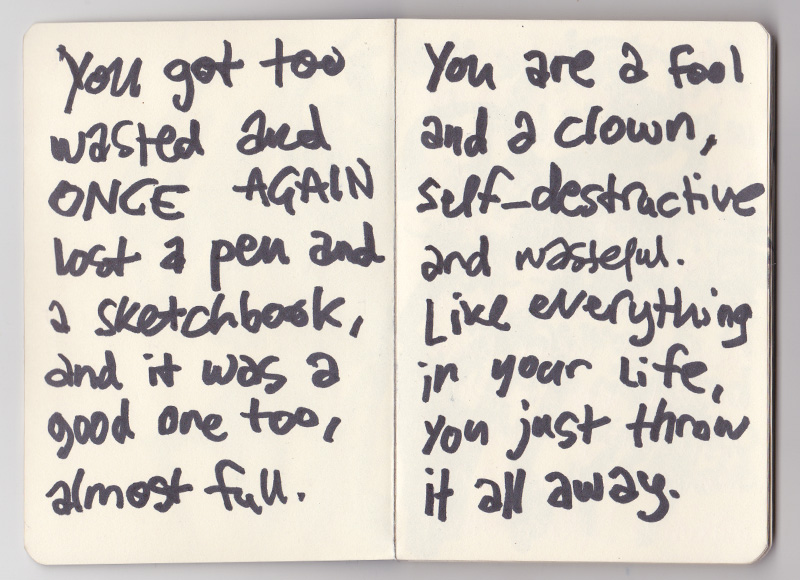 You got too
wasted and
ONCE AGAIN
lost a pen and
a sketchbook,
and it was a
good one too,
almost full.
You are a fool
and a clown,
self-destructive
and wasteful.
Like everything
in your life,
you just throw
it all away.